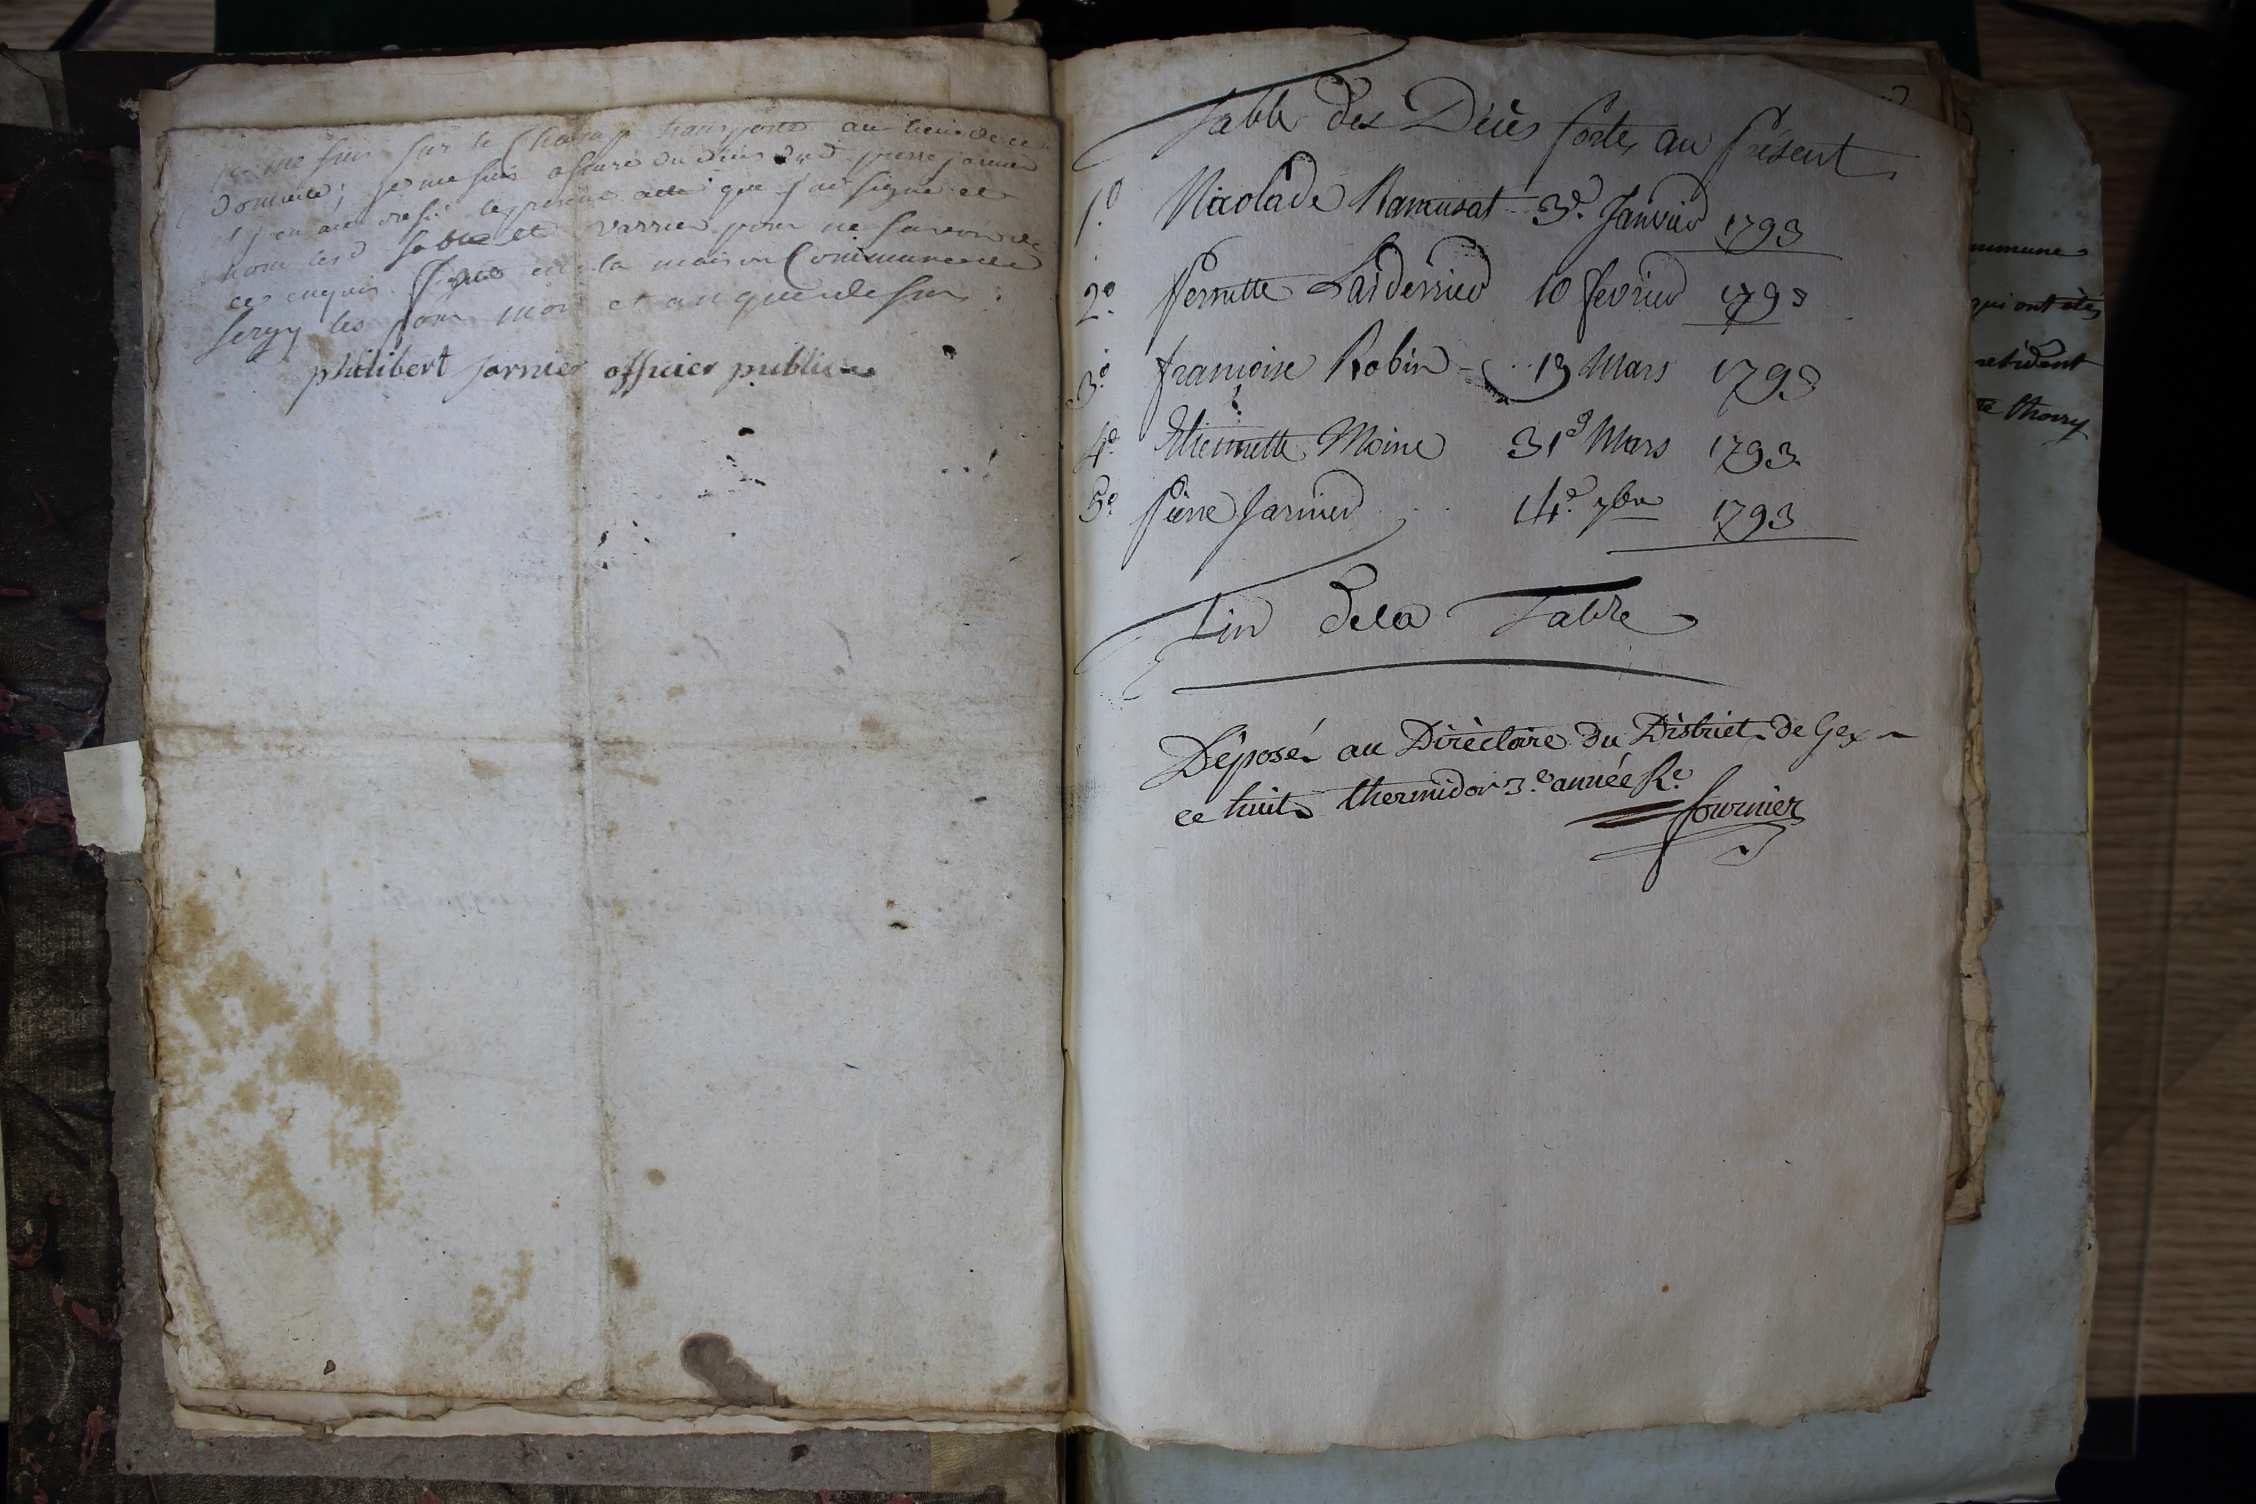 je me suis sur le Champ transporté au lieu de ce
domicile, je me suis assuré du déces dud pierre jarnier
et j'en aie dressé le présent acte que j'ai signé et
non lesd Varrier pour ne savoir de
ces enquis. fait en la maison Commune de
Sergy les jour mois et an que dessus.
philibert jarnier officier public
Table des Décès Portés au Présent
1.º Nicolade Ramusat 3.e Janvier 1793
2.º Pernette Larderrier 10 fevrier 1793
3.º françoise Robin 13 Mars 1793
4.º Etiennette Moine 31e Mars 1793
5.º Piere Jarnier 14.e 7bre 1793
Fin de la Table
Déposé au Diréctoire du District de Gex
ce huit thermidor 3.e année Re.
fournier
mmune
qui ont étés
résident
thoiry